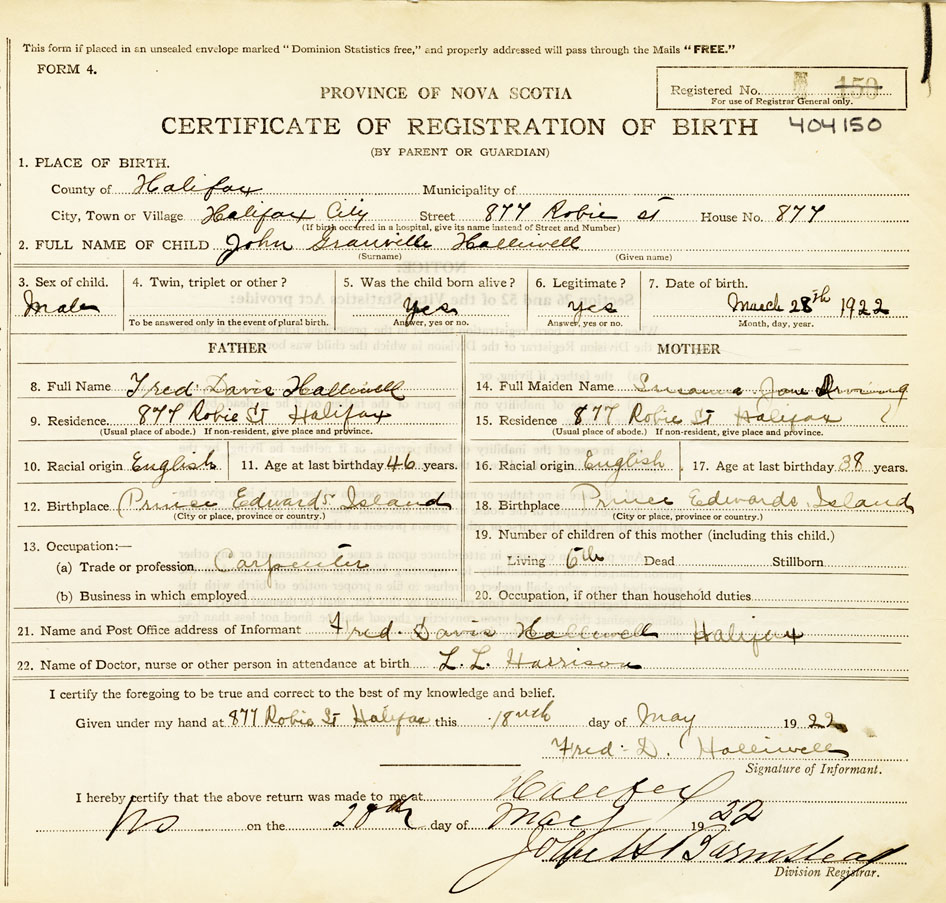 This form if placed in an unsealed envelope marked "Dominion Statistics free," and properly addressed will pass through the Mails "FREE."
FORM 4.
Registered No. 150
For use of Registrar General only.
PROVINCE OF NOVA SCOTIA
CERTIFICATE OF REGISTRATION OF BIRTH 404150
(BY PARENT OR GUARDIAN)
1. PLACE OF BIRTH.
County of Halifax Municipality of
City, Town or Village Halifax City Street 877 Robie St House No. 877
(If birth occurred in a hospital, give its name instead of Street and Number)
2. FULL NAME OF CHILD John Granville Halliwell
(Surname) (Given name)
3. Sex of child. 4. Twin, triplet or other? 5. Was the child born alive? 6. Legitimate? 7. Date of birth.
Male Yes yes March 28th 1922
To be answered only in the event of plural birth. Answer, yes or no. Answer, yes or no. Month, day, year.
FATHER MOTHER
8. Full Name Fred Davis Halliwell 14. Full Maiden Name Jane Irving
9. Residence 877 Robie St Halifax 15. Residence 877 Robie St Halifax
(Usual place of abode.) If non-resident, give place and province. (Usual place of abode.) If non-resident, give place and province.
10. Racial origin English 11. Age at last birthday 46 years. 16. Racial origin English 17. Age at last birthday 38 years.
12. Birthplace Prince Edwards Island 18. Birthplace Prince Edwards Island
(City or place, province or country.) (City or place, province or country.)
13. Occupation:— 19. Number of children of this mother (including this child.)
(a) Trade or profession Carpenter Living 6th Dead Stillborn
(b) Business in which employed 20. Occupation, if other than household duties
21. Name and Post Office address of Informant Fred. Davis Halliwell Halifax
22. Name of Doctor, nurse or other person in attendance at birth L. L. Harrison
I certify the foregoing to be true and correct to the best of my knowledge and belief.
Given under my hand at 877 Robie St Halifax this day of May 1922
Fred. D. Halliwell
Signature of Informant.
I hereby certify that the above return was made to me at Halifax
NS on the 20th day of May 1922
Barnstead
Division Registrar.